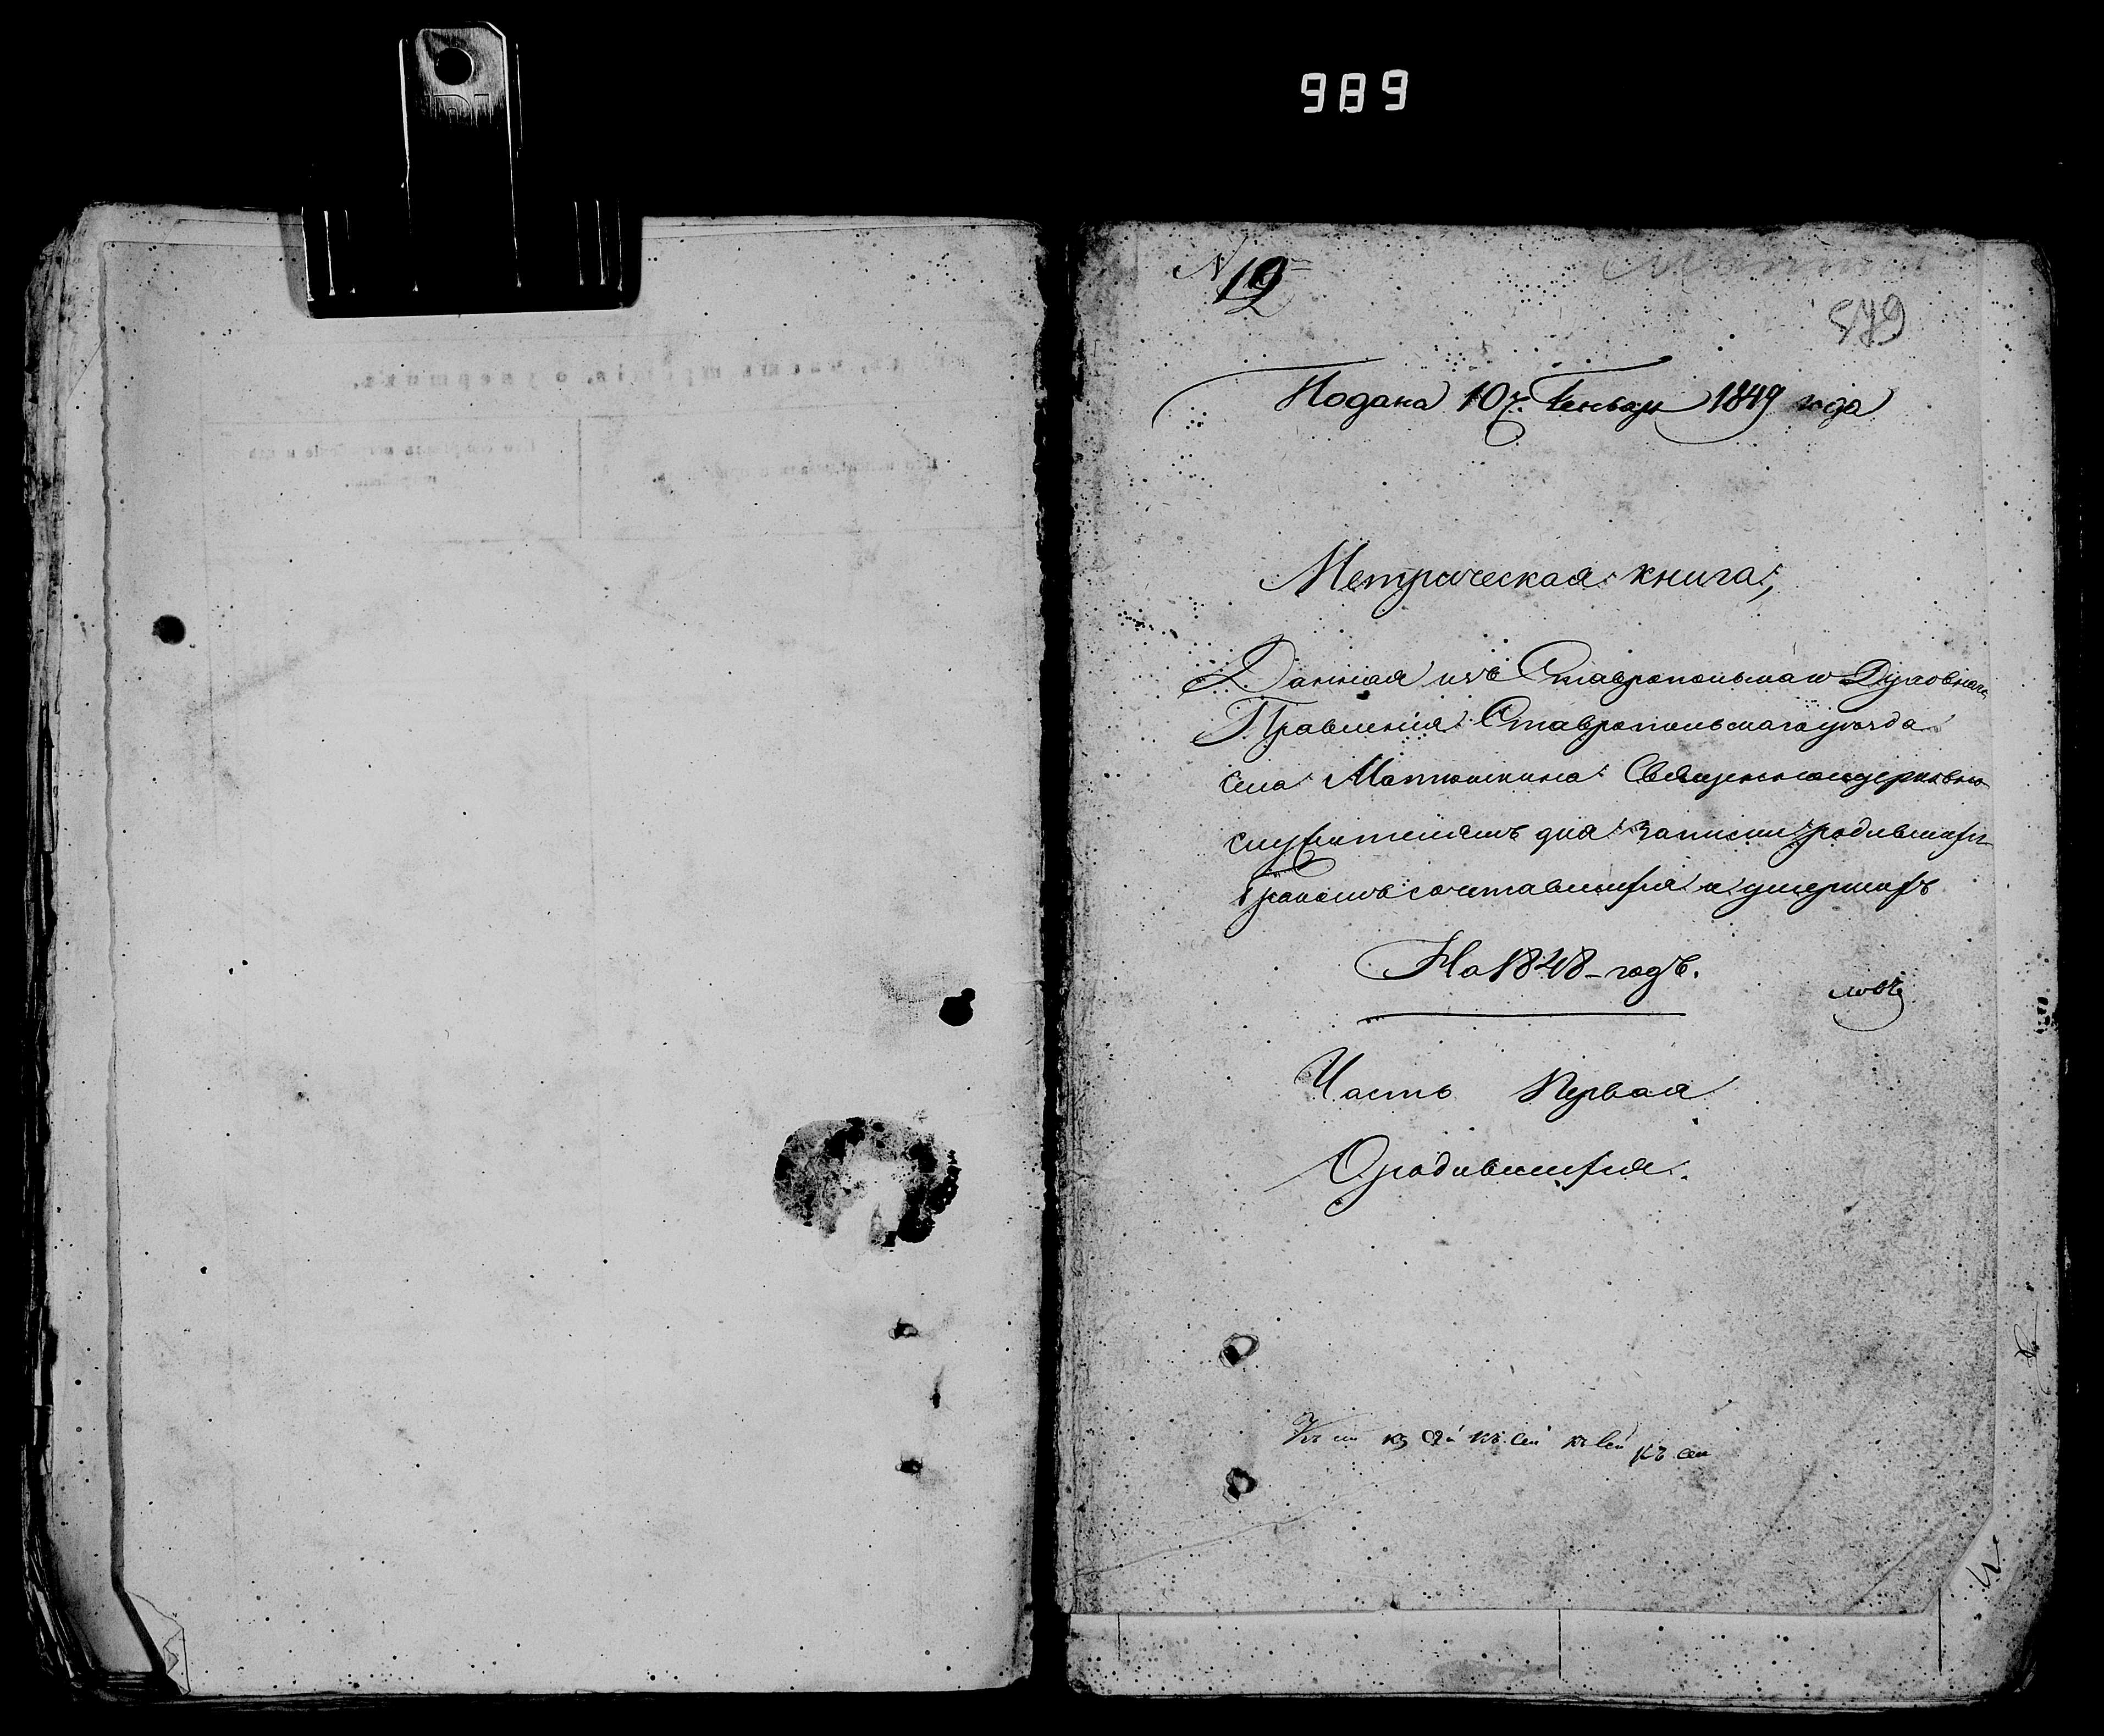 989
№ 19
879
Подана 10 ч. Генваря 1849 года
Метрическая книга,
Данная изъ Ставропольскаго Духовнаго
Правления Ставропольскаго уезда
села Матюшкина Священноцерковно
служителямъ для записки родившихся
бракомъ сочетавшихся и умершихъ
На 1848-годъ.
Часть Первая
О родившихся.
къ сей къ сей къ сей къ сей